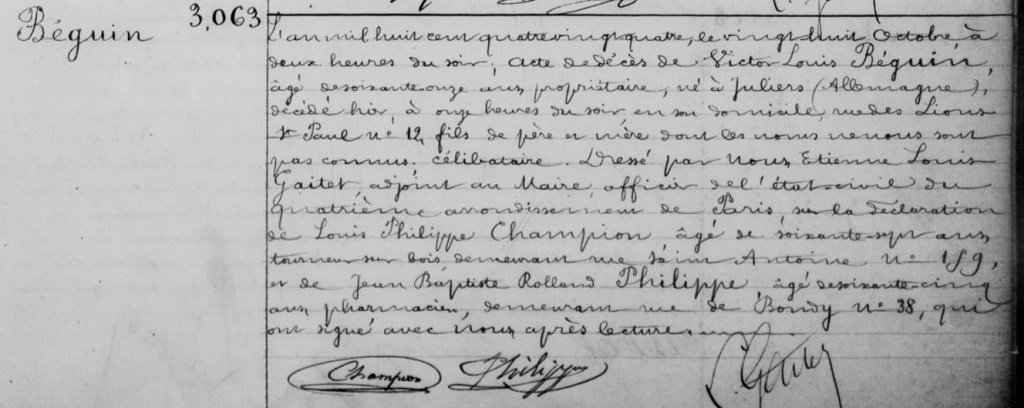 3,063
Béguin
L'an mil huit cent quatre vingt quatre, le vingt huit Octobre, à
deux heures du soir, Acte de décès de Victor Louis Béguin,
âgé de soixante-onze ans, propriétaire, né à Juliers (Allemagne),
décédé hier, à onze heures du soir, en son domicile, rue des Lions
St Paul no 12, fils de père et mère dont les noms ne nous sont
pas connus. Célibataire. Dressé par Nous, Etienne Louis
Gaitet, adjoint au Maire, officier de l'état-civil du
quatrième arrondissement de Paris, sur la déclaration
de Louis Philippe Champion, âgé de soixante-sept ans,
tourneur sur bois demeurant rue Saint Antoine no 159,
et de Jean Baptiste Rolland Philippe, âgé de soixante-cinq
ans, pharmacien, demeurant rue de Bondy no 38, qui
ont signé avec Nous après lecture.
Champion Philippe Gaitet